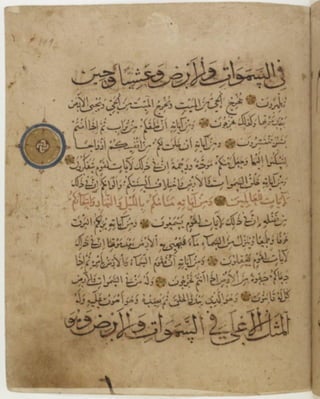 في السموات والارض وعشيا وحين
تظهرون يخرج الحي من الميت ويخرج الميت من الحي ويحيي الارض
بعد موتها وكذلك تخرجون ومن آياته ان خلقكم من تراب ثم اذا انتم
بشر تنتشرون ومن آياته ان خلق لكم من انفسكم ازواجا
لتسكنوا اليها وجعل بينكم مودة ورحمة ان في ذلك لآيات لقوم يتفكرون
ومن آياته خلق السموات والارض واختلاف السنتكم والوانكم ان في ذلك
لآيات للعالمين ومن آياته منامكم بالليل والنهار وابتغاؤكم
من فضله ان في ذلك لآيات لقوم يسمعون ومن آياته يريكم البرق
خوفا وطمعا وينزل من السماء ماء فيحيي به الارض بعد موتها ان في ذلك
لآيات لقوم يعقلون ومن آياته ان تقوم السماء والارض بامره ثم اذا
دعاكم دعوة من الارض اذا انتم تخرجون وله من في السموات والارض
كل له قانتون وهو الذي يبدأ الخلق ثم يعيده وهو اهون عليه وله
المثل الاعلى في السموات والارض وهو